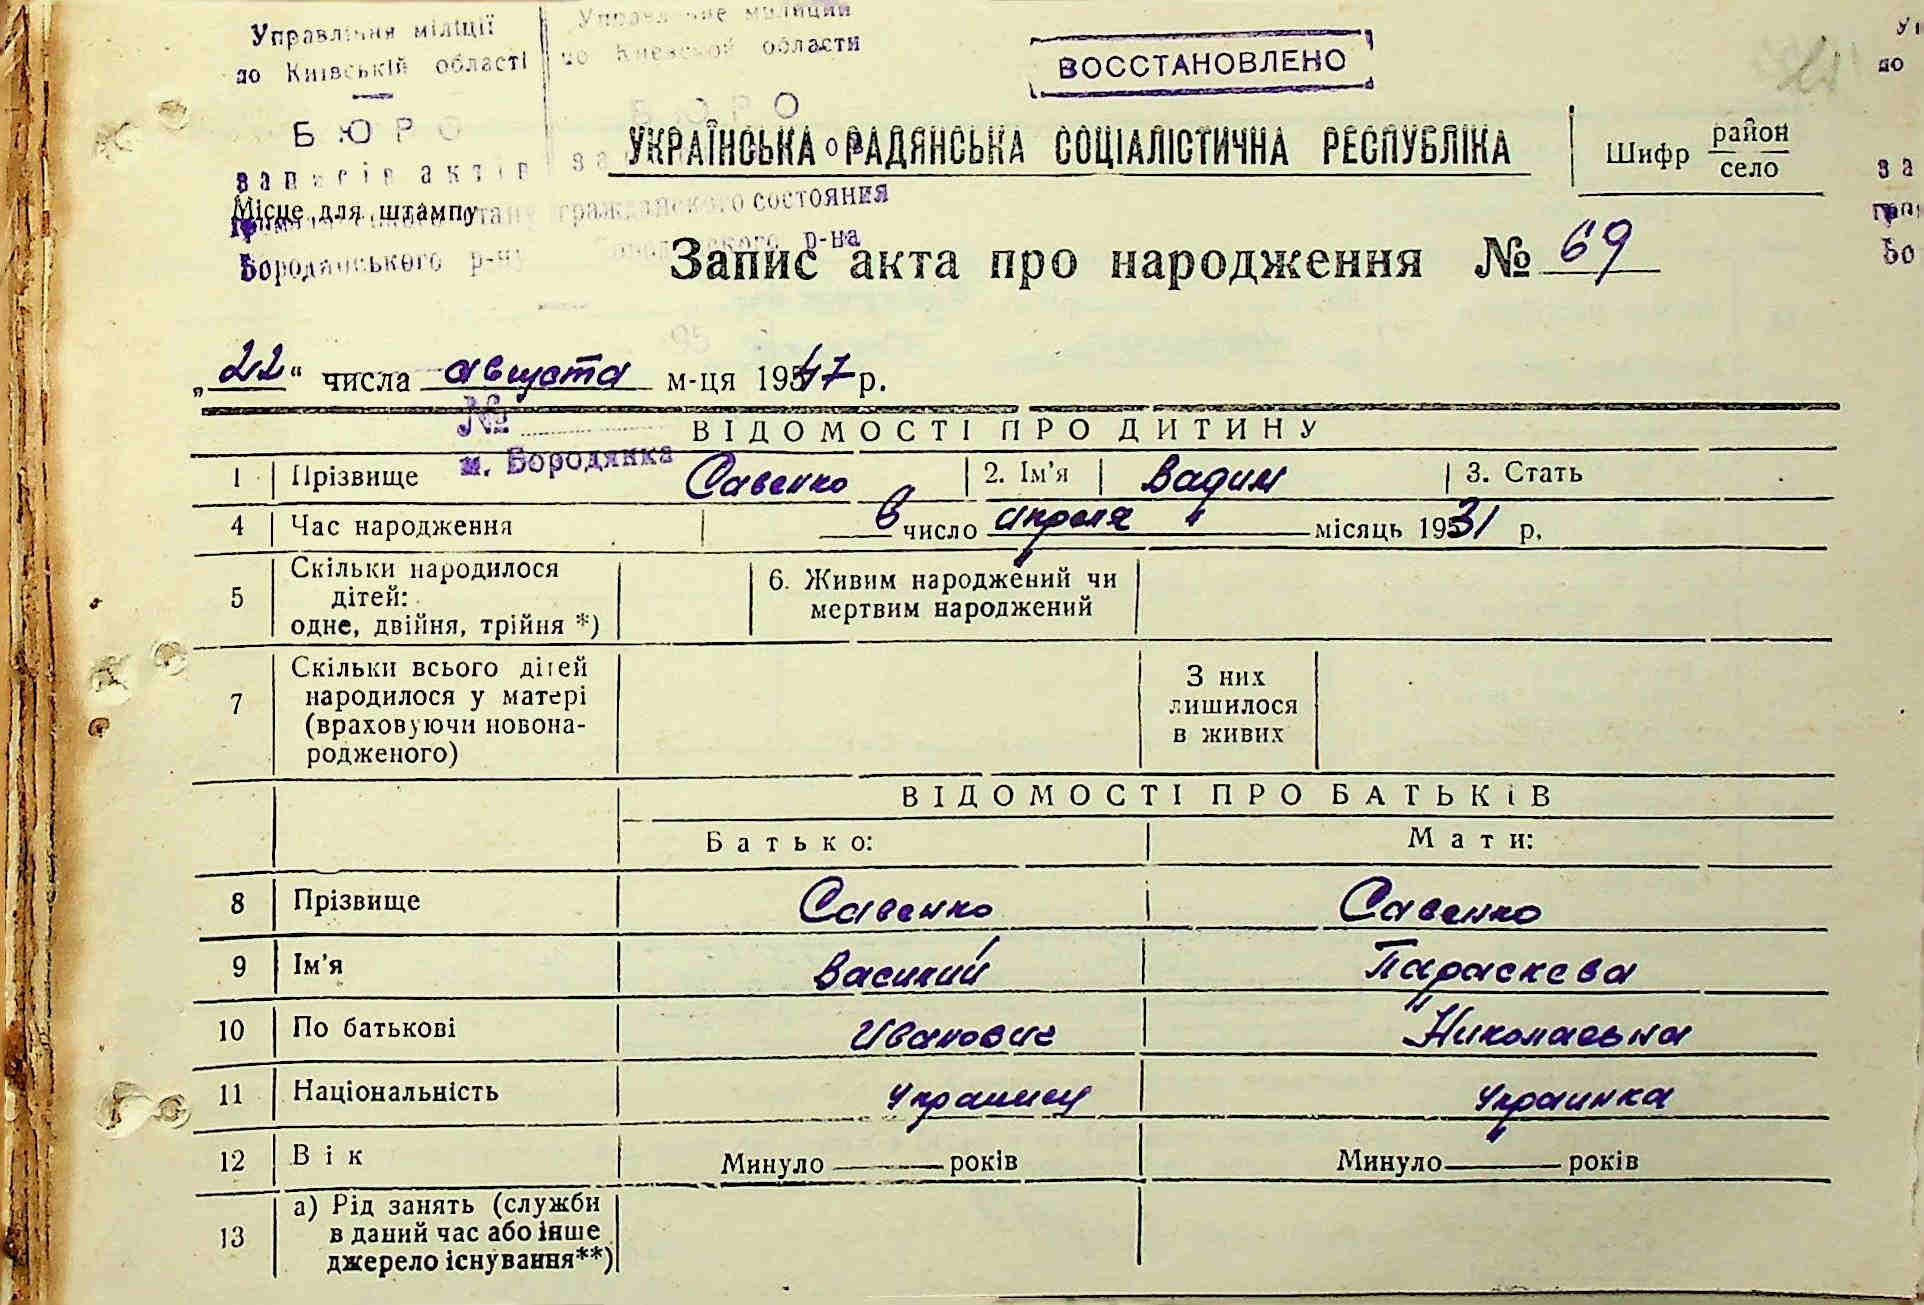 Управління міліції
по Київській області
БЮРО
записів актів
стану
Бородянського р-ну
Управление милиции
по Киевской области
БЮРО
гражданского состояния
Бородянского р-на
№
м. Бородянка
ВОССТАНОВЛЕНО
УКРАЇНСЬКА РАДЯНСЬКА СОЦІАЛІСТИЧНА РЕСПУБЛІКА
Шифр район
село
Місце для штампу
Запис акта про народження № 69
„22“ числа августа м-ця 1947 р.
ВІДОМОСТІ ПРО ДИТИНУ
1 Прізвище Савенко 2. Ім'я Вадим 3. Стать
4 Час народження 6 число апреля місяць 1931 р.
5 Скільки народилося
дітей:
одне, двійня, трійня *)
6. Живим народжений чи
мертвим народжений
7 Скільки всього дітей
народилося у матері
(враховуючи новона-
родженого)
З них
лишилося
в живих
ВІДОМОСТІ ПРО БАТЬКІВ
Батько: Мати:
8 Прізвище Савенко Савенко
9 Ім'я Василий Параскева
10 По батькові Иванович Николаевна
11 Національність украинец украинка
12 Вік Минуло років Минуло років
13 а) Рід занять (служби
в даний час або інше
джерело існування**)